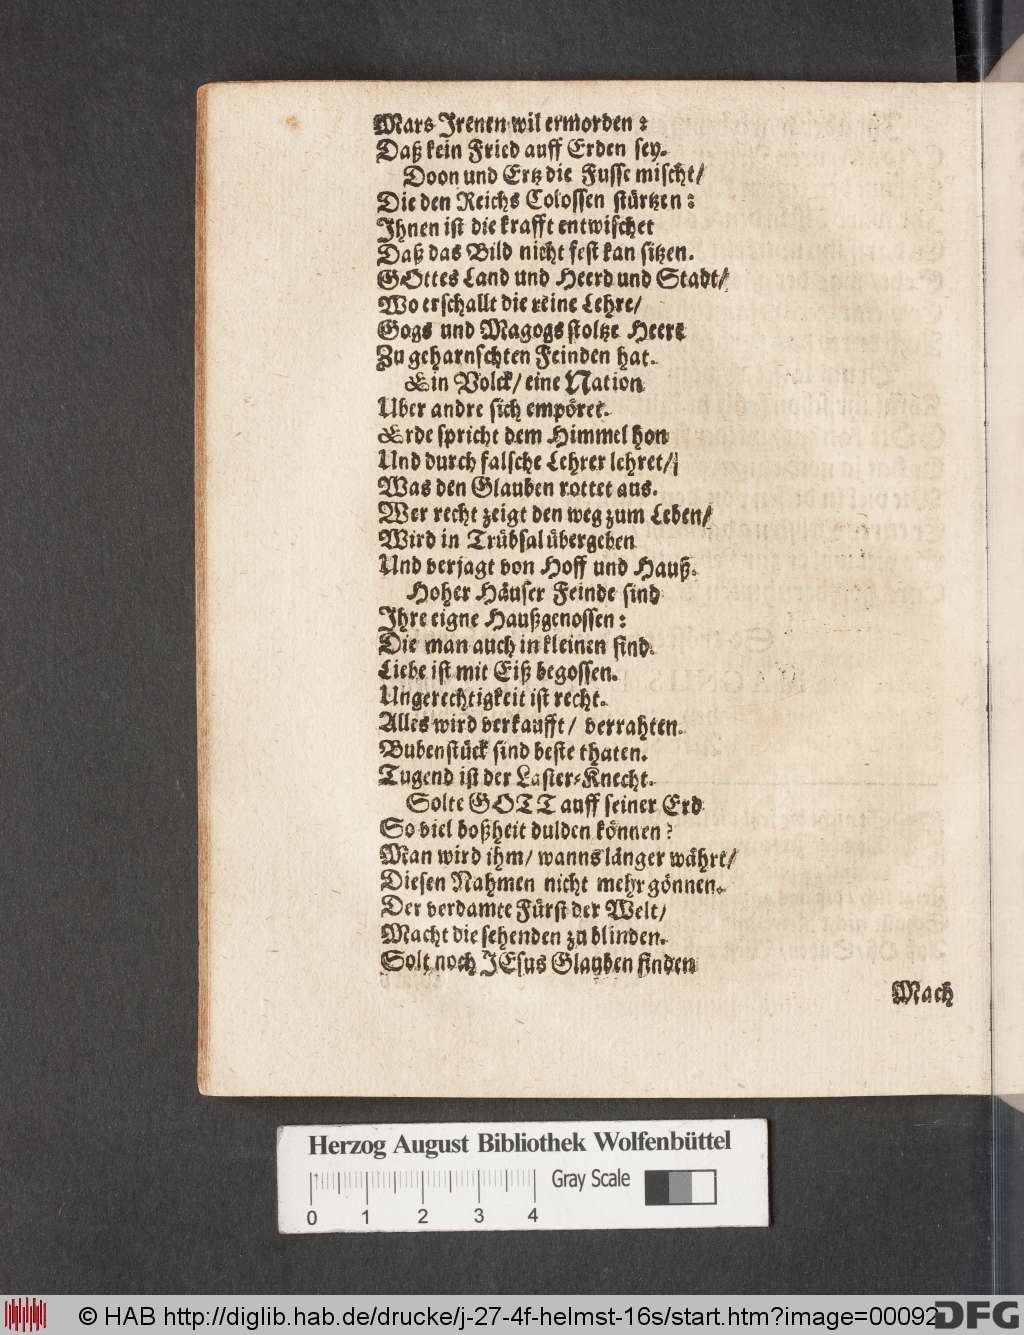 Mars Irenen wil ermorden:
Daß kein Fried auff Erden sey.
Doon und Ertz die Fusse mischt/
Die den Reichs Colossen stürtzen:
Ihnen ist die krafft entwischet
Daß das Bild nicht fest kan sitzen.
GOttes Land und Heerd und Stadt/
Wo erschallt die reine Lehre/
Gogs und Magogs stoltze Heere
Zu geharnschten Feinden hat.
Ein Volck/ eine Nation
Uber andre sich empöret.
Erde spricht dem Himmel hon
Und durch falsche Lehrer lehret/
Was den Glauben rottet aus.
Wer recht zeigt den weg zum Leben/
Wird in Trübsal übergeben
Und verjagt von Hoff und Hauß.
Hoher Häuser Feinde sind
Ihre eigne Haußgenossen:
Die man auch in kleinen find.
Liebe ist mit Eiß begossen.
Ungerechtigkeit ist recht.
Alles wird verkaufft/ verrahten.
Bubenstück sind beste thaten.
Tugend ist der Laster-Knecht.
Solte GOTT auff seiner Erd
So viel boßheit dulden können?
Man wird ihm/ wanns länger währt/
Diesen Nahmen nicht mehr gönnen.
Der verdamte Fürst der Welt/
Macht die sehenden zu blinden.
Solt noch JEsus Glauben finden
Mach
Herzog August Bibliothek Wolfenbüttel
Gray Scale
0 1 2 3 4
© HAB http://diglib.hab.de/drucke/j-27-4f-helmst-16s/start.htm?image=00092
DFG